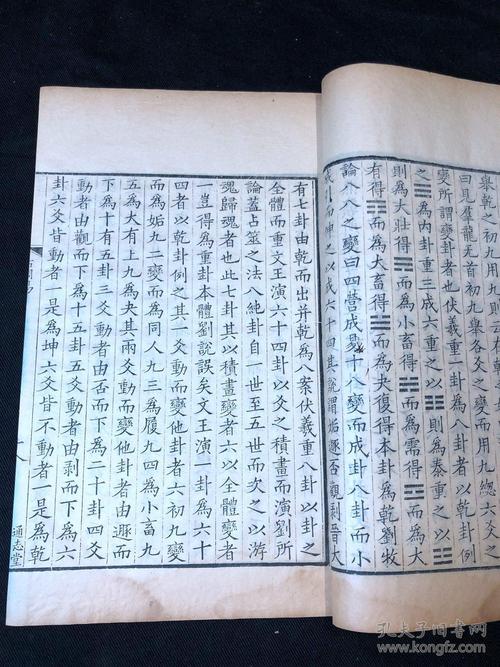 舉乾之初九用九
曰見羣龍无首初九舉各爻之變而用九總六
變所謂變卦者也伏羲重一卦為八卦者如乾例
之☰為內卦重三成六重之以☷則為泰重之以☳
則為大壯得☴而為小畜得☵而為需得
有得☶而為大畜得☱而為夬復得本卦為乾劉牧
論八八之變曰四營成易十八變成卦八卦而小
成引而伸之以成六十四其說謂姤遯否觀剥晉大
有七卦由乾而出并乾為八案伏羲重八卦以卦之
全體而重文王演六十四卦以爻之積畫而演劉所
論蓋占筮之法八純卦自一世至五世而次之以游
魂歸魂者也此七卦其以積畫變者六以全體變者
一豈得為重卦本體劉說誤矣文王演一卦為六十
四者以乾卦例之其一爻動而變他卦者六初九變
而為姤九二變而為同人九三為履九四為小畜九
五為大有上九為夬其兩爻動而變他卦者由遯而
下為十有五卦三爻動者由否而下為二十卦四爻
動者由觀而下為十五卦五爻動者由剥而下為六
卦六爻皆動者一是為坤六爻皆不動者一是為乾
通志堂
孔夫子旧书网
kongfz.com